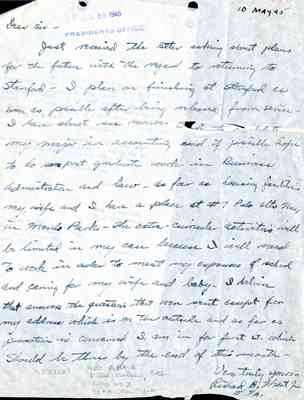 10 MAY 45
1945
PRESIDENT'S OFFICE
Dear Sir -
Just received the letter asking about plans
for the future with the need to returning to
Stanford - I plan on finishing at Stanford as
soon as possible after being released from service
I have about six months to
my major in accounting and if possible hope
to do graduate work in Business
Administration and Law - as far as housing facilities
my wife and I have a place at #7 Palo Alto
in Menlo Park - The extra curricular activities will
be limited in my case because I will need
to work in order to meet my expenses of school
and caring for my wife and baby - I believe
that answers the questions that were sent except for
my address which is on the outside and as far as
is concerned I am in for first Lt. which
should be thru by the end of this month -
Very truly yours -
Richard